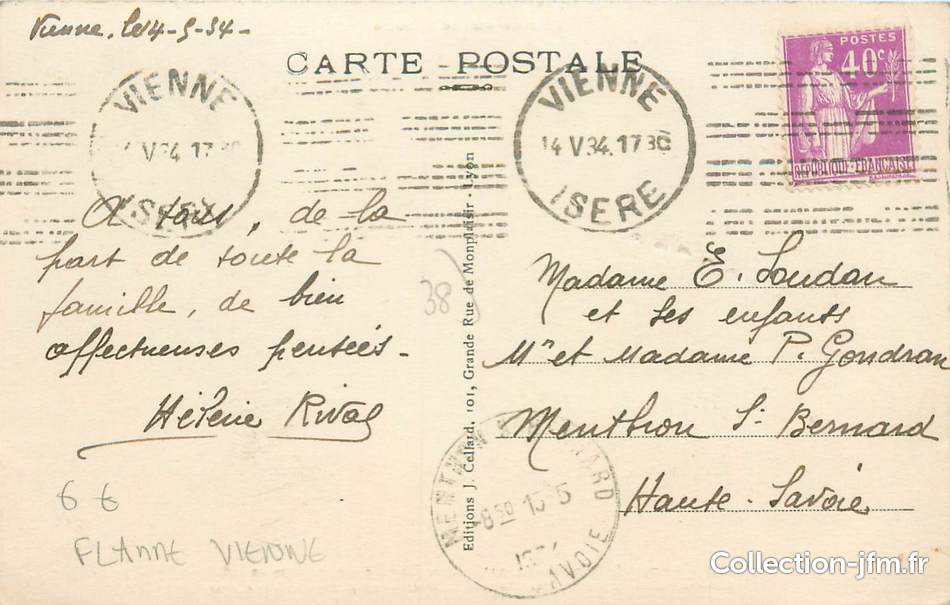 Vienne, le 14-5-34-
CARTE POSTALE
POSTES
40c
REPUBLIQUE FRANCAISE
VIENNE
14 V 34. 17 30
ISERE
VIENNE
V 34 17 30
ISERE
A tous, de la
part de toute la
famille, de bien
affectueuses pensées-
Hélène Rival
38
Editions J. Cellard, 101, Grande Rue de Monplaisir - Lyon
Madame E. Soudan
et ses enfants
Mr et Madame P. Gondran
Menthon St Bernard
Haute-Savoie
MENTHON NARD
8 30 15-5
SAVOIE
6 €
FLAMME VIENNE
Collection-jfm.fr